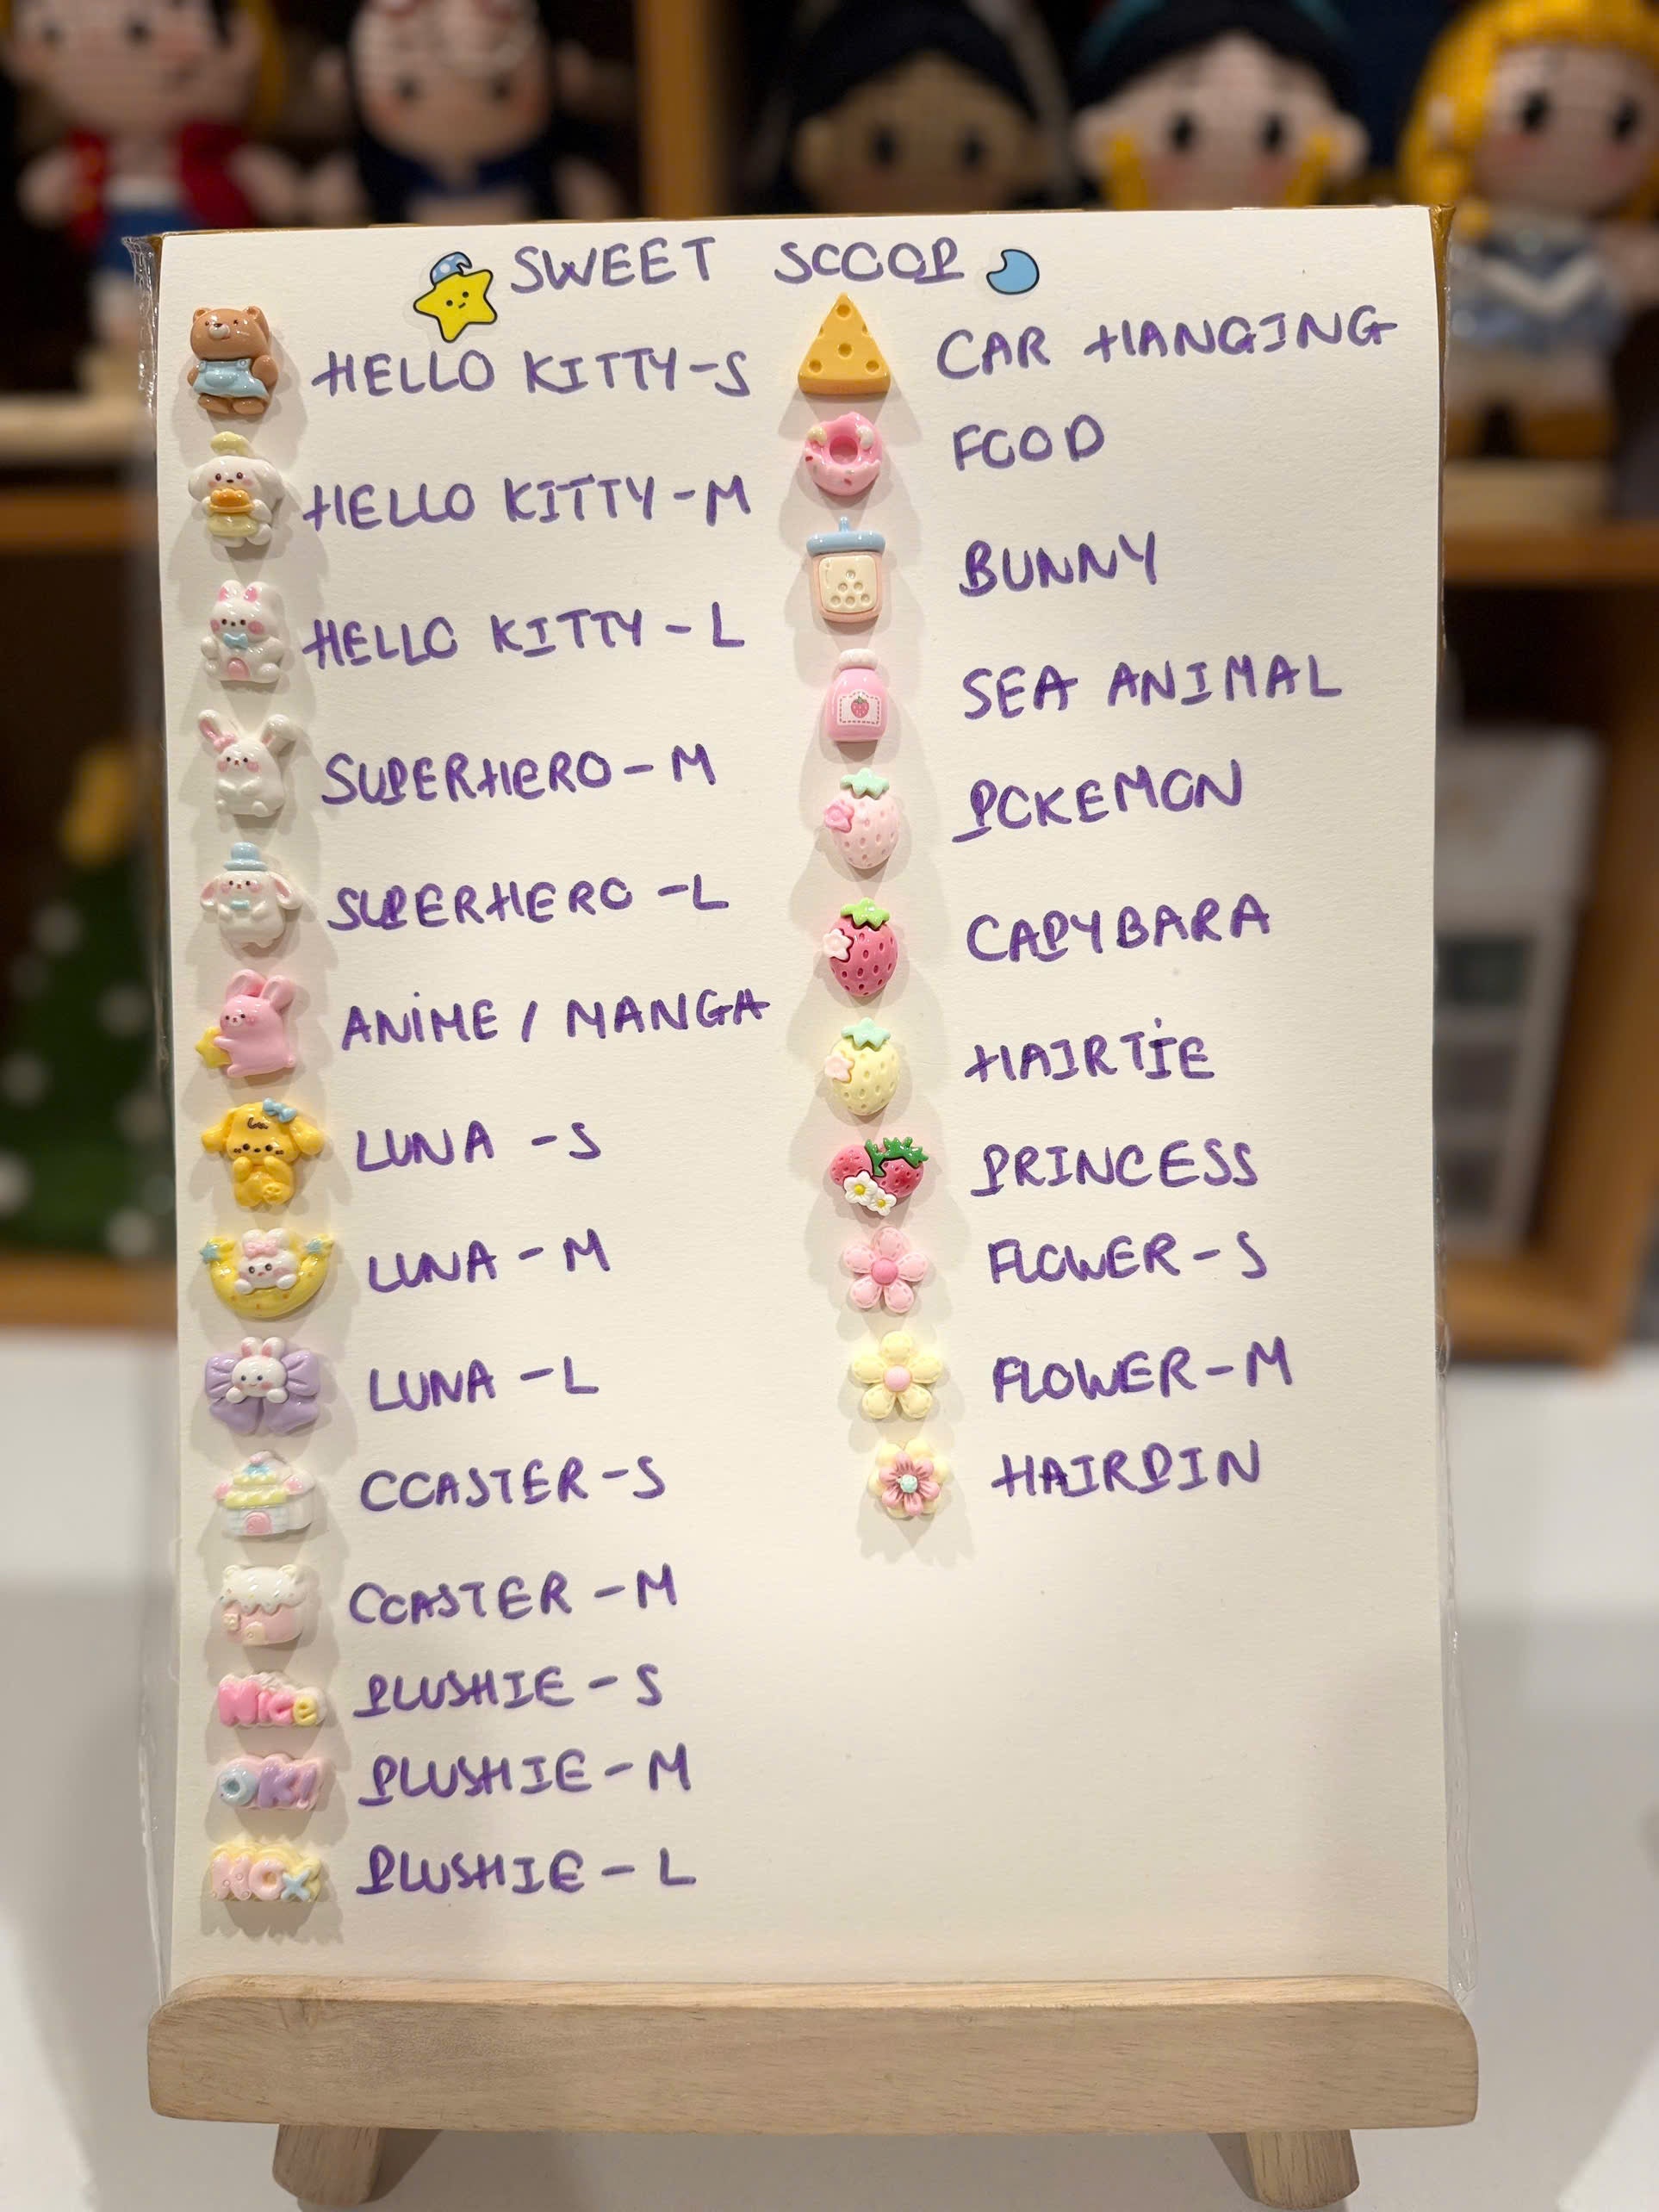 SWEET SCOOP
HELLO KITTY-S
HELLO KITTY-M
HELLO KITTY-L
SUPERHERO-M
SUPERHERO-L
ANIME / MANGA
LUNA-S
LUNA-M
LUNA-L
COASTER-S
COASTER-M
Nice PLUSHIE-S
OK! PLUSHIE-M
PLUSHIE-L
CAR HANGING
FOOD
BUNNY
SEA ANIMAL
POKEMON
CAPYBARA
HAIRTIE
PRINCESS
FLOWER-S
FLOWER-M
HAIRPIN